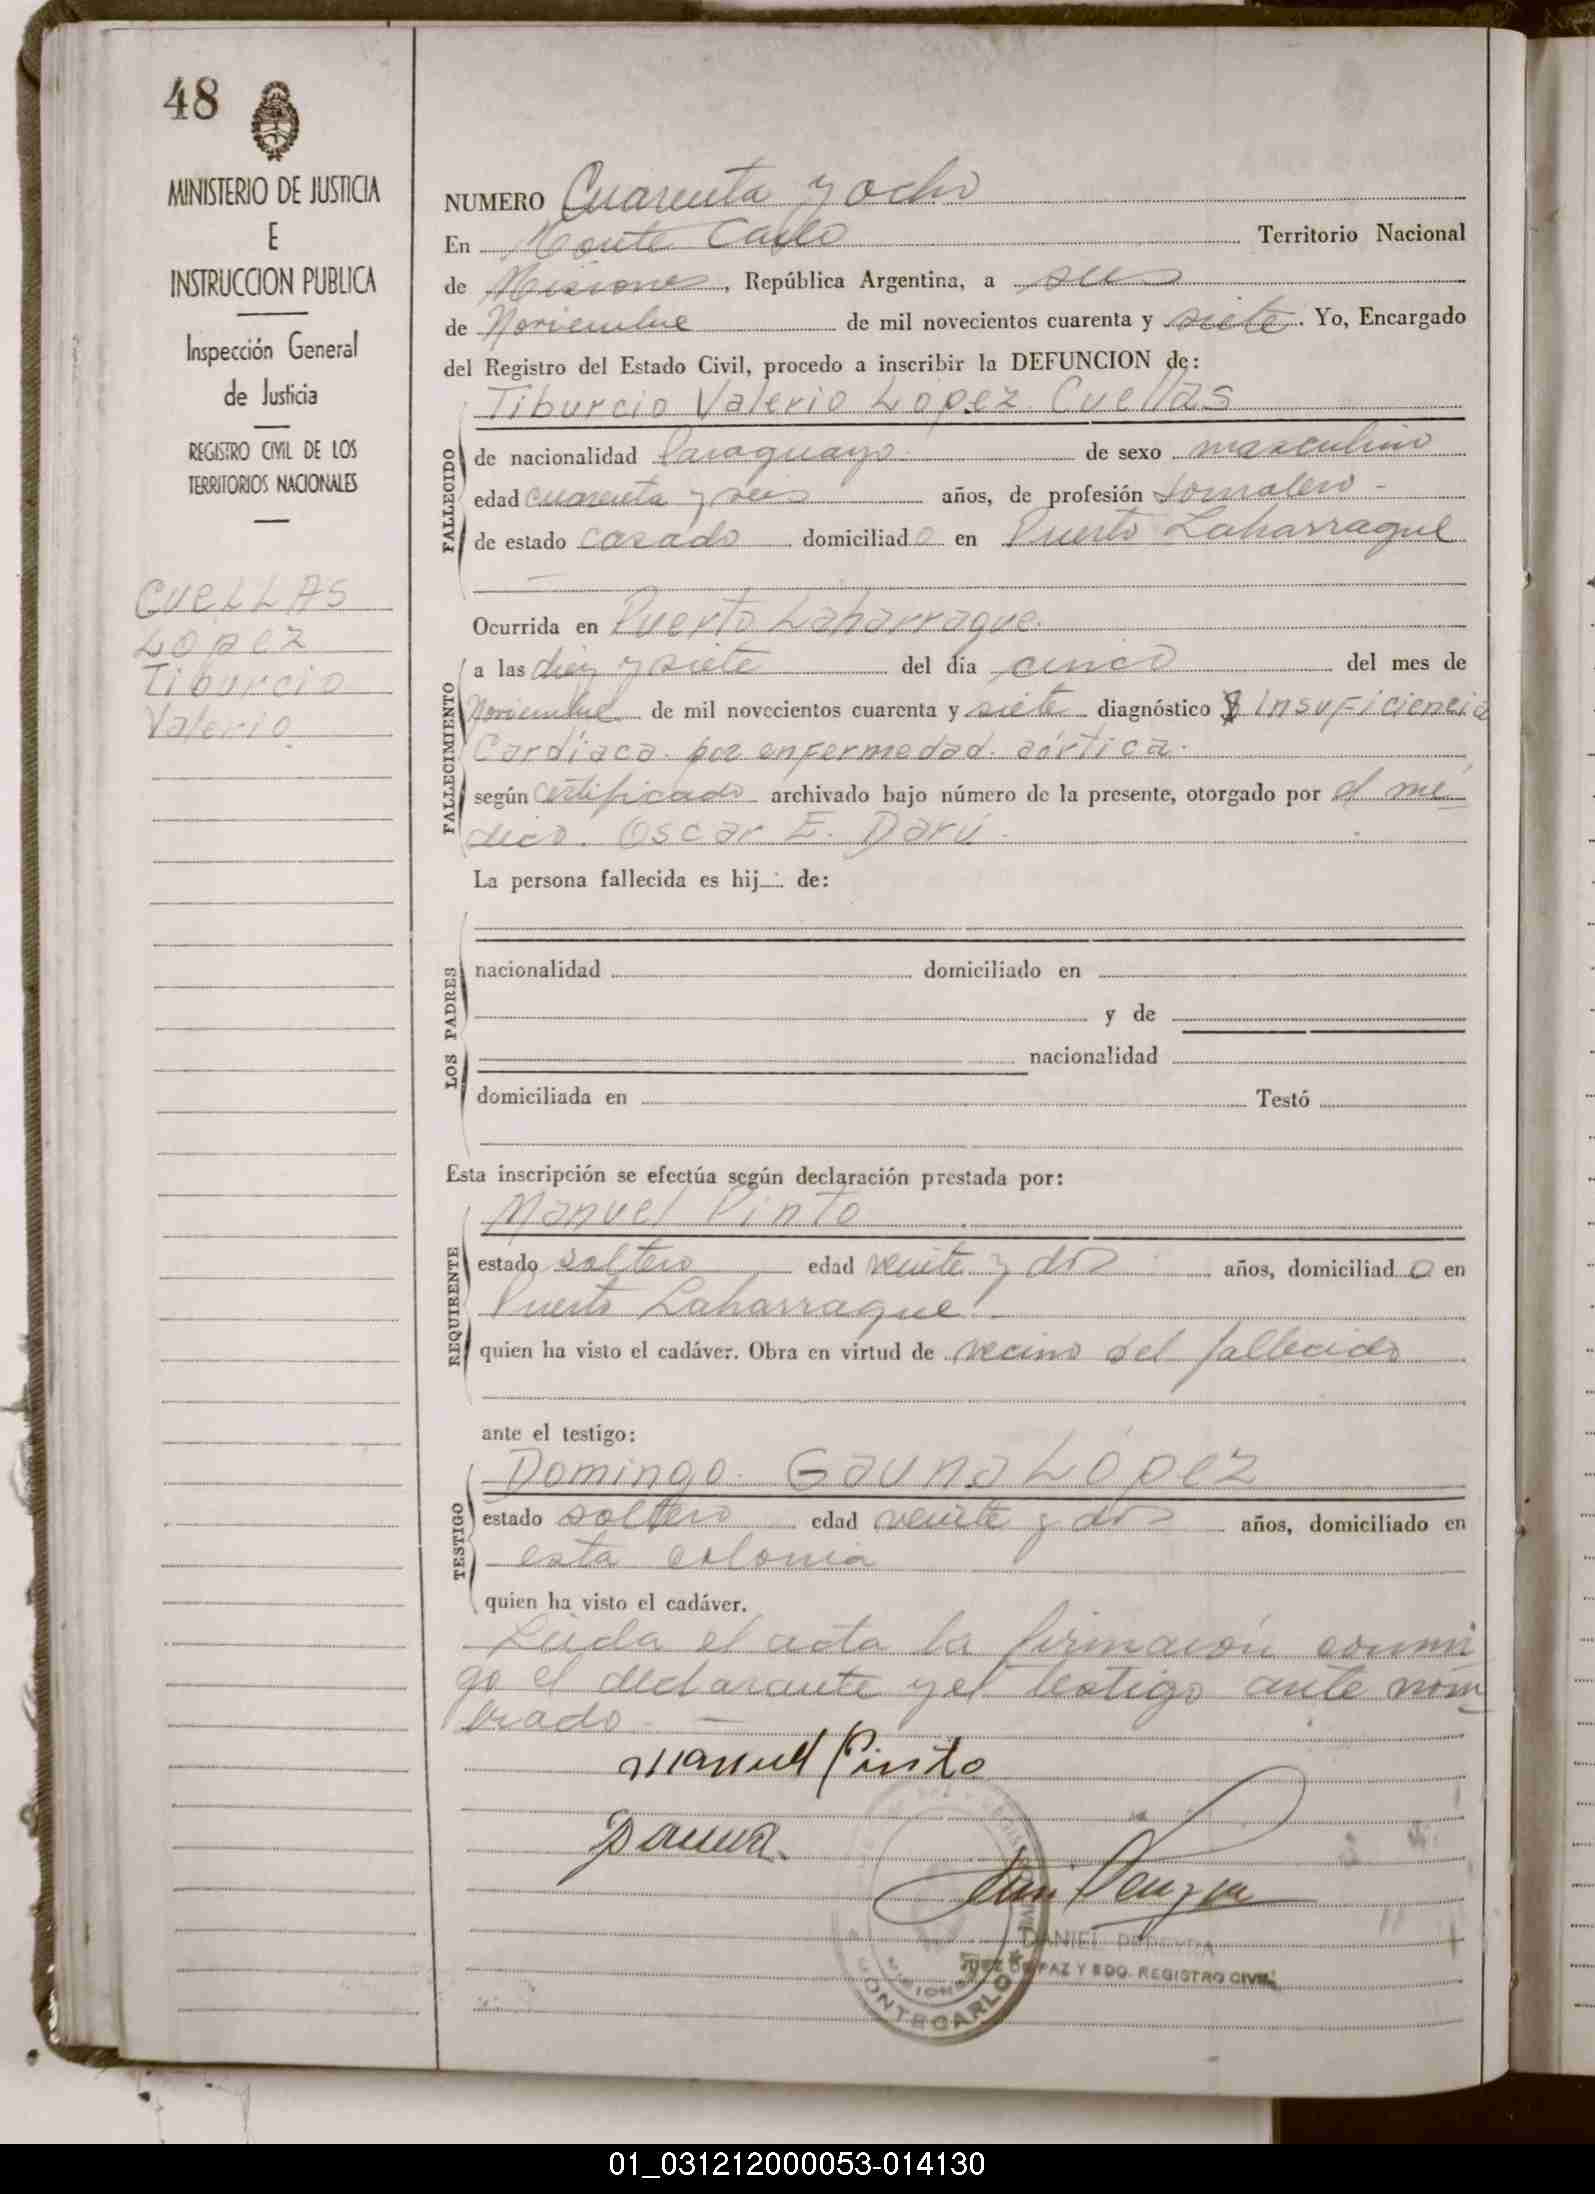 48
MINISTERIO DE JUSTICIA
E
INSTRUCCION PUBLICA
Inspección General
de Justicia
REGISTRO CIVIL DE LOS
TERRITORIOS NACIONALES
CUELLAS
Lopez
Tiburcio
Valerio
NUMERO Cuarenta y ocho
En Monte Carlo Territorio Nacional
de Misiones, República Argentina, a seis
de Noviembre de mil novecientos cuarenta y siete. Yo, Encargado
del Registro del Estado Civil, procedo a inscribir la DEFUNCION de:
Tiburcio Valerio Lopez Cuellas
FALLECIDO
de nacionalidad Paraguayo de sexo masculino
edad cuarenta y seis años, de profesión Jornalero -
de estado casado domiciliado en Puerto Laharrague
Ocurrida en Puerto Laharrague.
FALLECIMIENTO
a las diez y siete del día cinco del mes de
Noviembre de mil novecientos cuarenta y siete diagnóstico Insuficiencia
Cardíaca por enfermedad aórtica.
según certificado archivado bajo número de la presente, otorgado por el mé-
dico. Oscar E. Darú.
La persona fallecida es hij de:
LOS PADRES
nacionalidad domiciliado en
y de
nacionalidad
domiciliada en Testó
Esta inscripción se efectúa según declaración prestada por:
Manuel Pinto
REQUIRENTE
estado soltero edad veinte y dos años, domiciliado en
Puerto Laharrague.
quien ha visto el cadáver. Obra en virtud de vecino del fallecido
ante el testigo:
Domingo Gauna López
TESTIGO
estado soltero edad veinte y dos años, domiciliado en
esta colonia
quien ha visto el cadáver.
Leída el acta la firmaron conmi
go el declarante y el testigo ante nom
brado. -
Manuel Pinto
DANIEL PEREYRA
JUEZ DE PAZ Y EDO. REGISTRO CIVIL
MISIONES
MONTECARLO
01_031212000053-014130